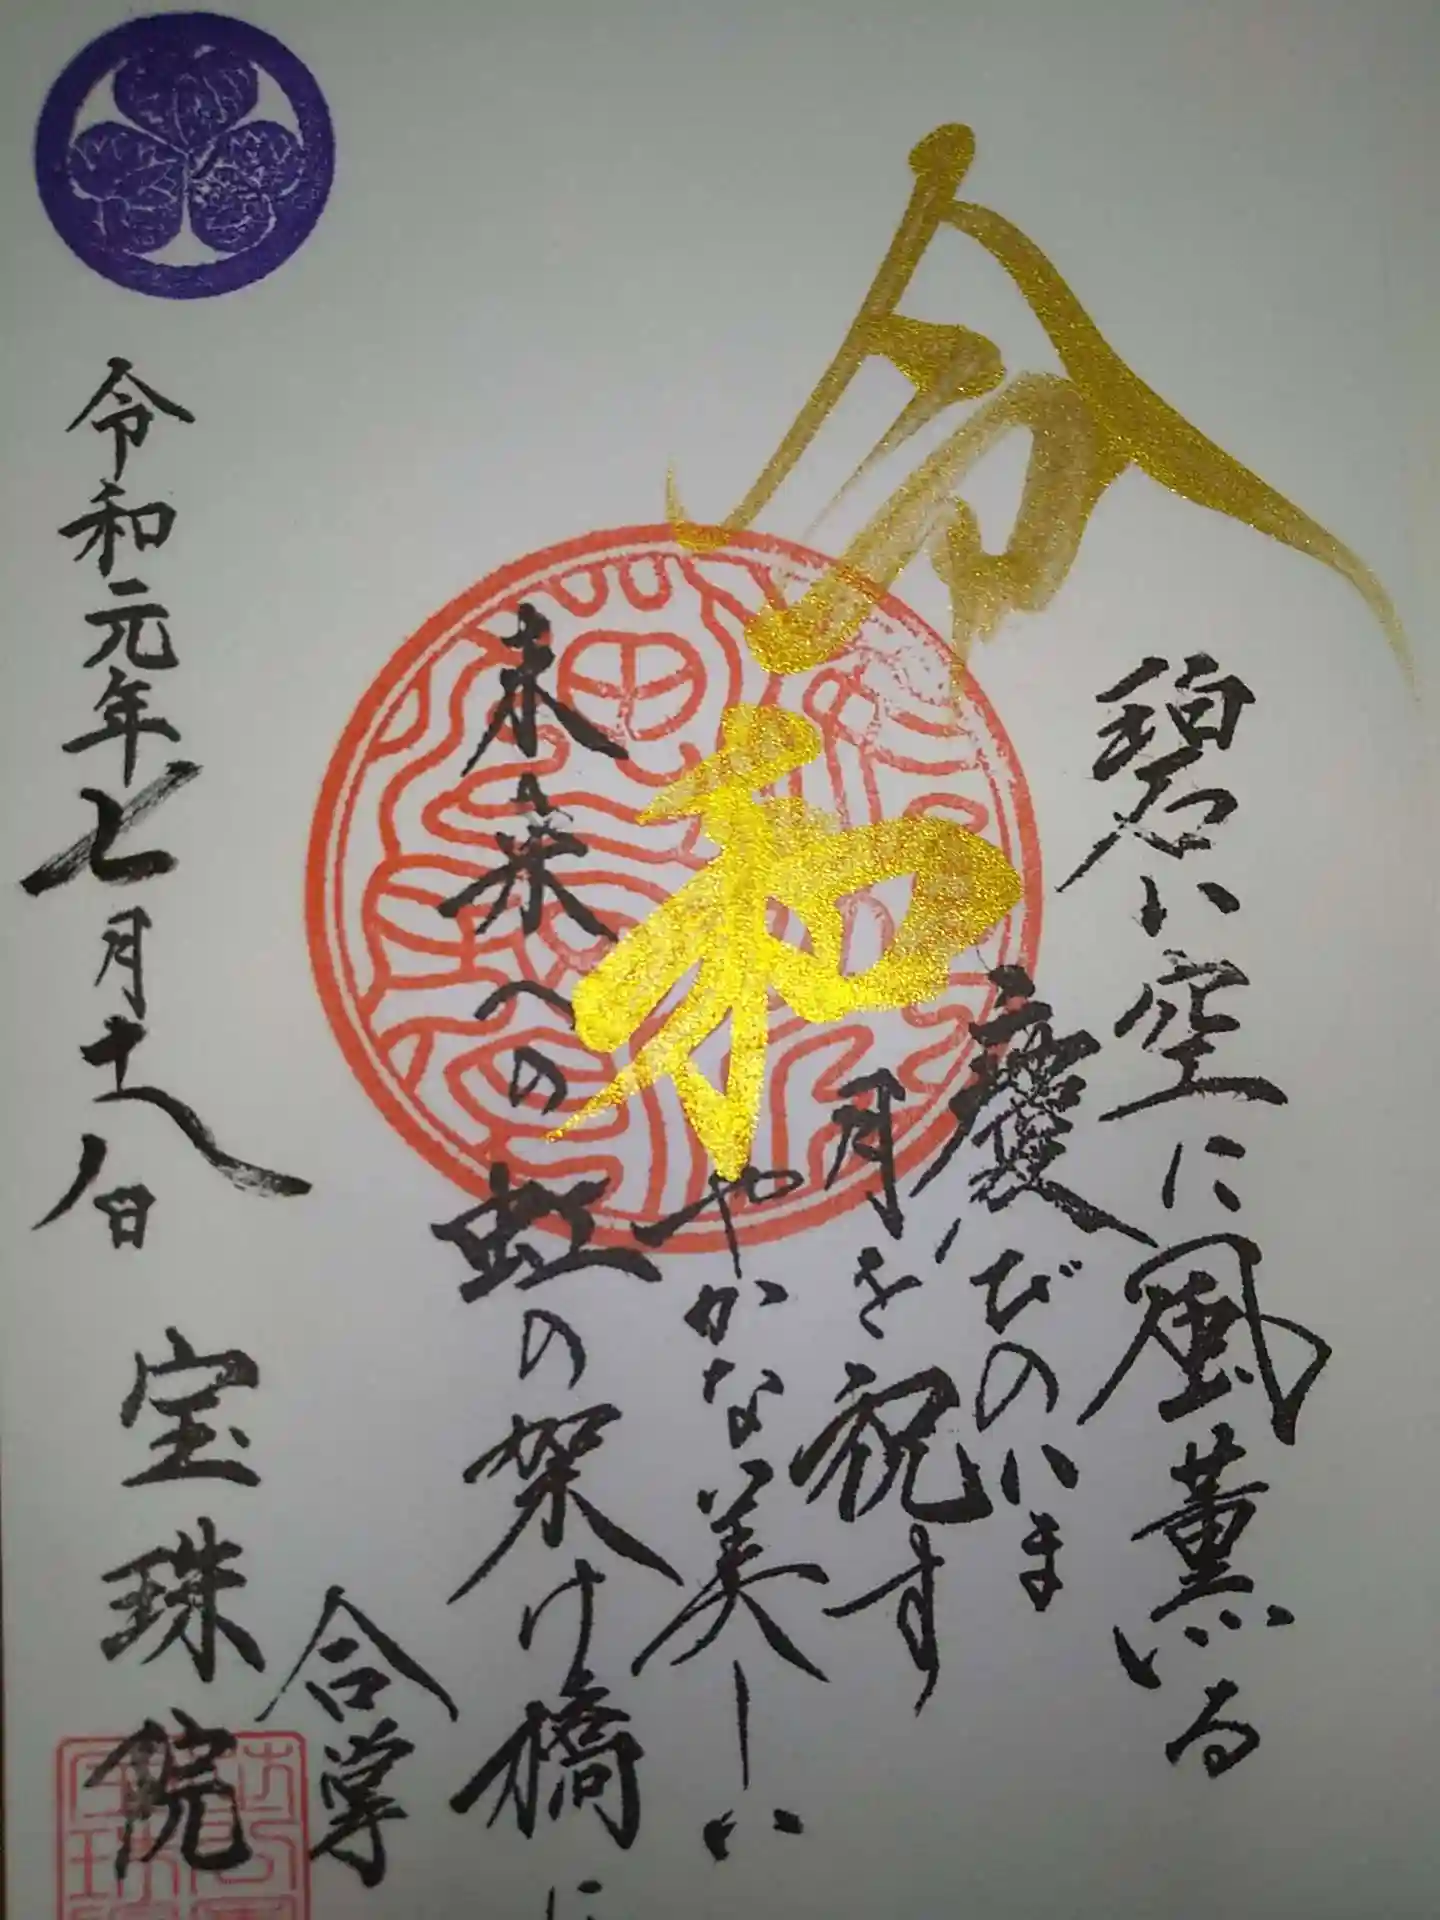 令和
碧い空に風薫る
慶びのいま
月を祝す
やかな美しい
未来への虹の架け橋に
合掌
令和元年七月十八日
宝珠院